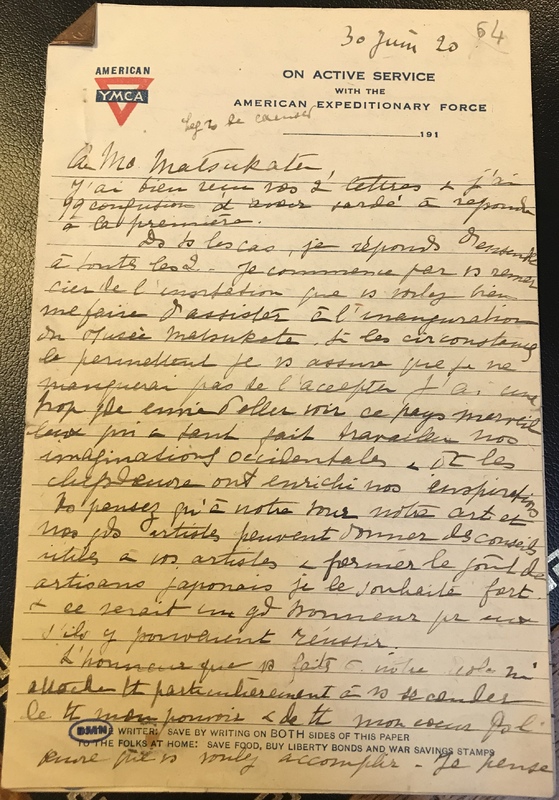 30 Juin 20 64
AMERICAN
YMCA
ON ACTIVE SERVICE
WITH THE
AMERICAN EXPEDITIONARY FORCE
191
Mo Matsukata
J'ai bien reçu vos 2 lettres & j'ai
qq confusion d'avoir tardé à répondre
à la première.
Ds ts les cas, je réponds ensuite
à toutes les 2. Je commence par vs remer
cier de l'invitation que vs voulez bien
me faire d'assister à l'inauguration
du Musée Matsukata. Si les circonstances
le permettent je vs assure que je ne
manquerai pas de l'accepter J'ai une
trop gde envie d'aller voir ce pays merveil
leux qui a tant fait travailler nos
imaginations occidentales & dt les
chefs d'œuvre ont enrichi nos inspirations
Vs pensez qu'à notre tour notre art et
nos gds artistes peuvent donner des conseils
utiles à vos artistes & former le goût des
artisans japonais je le souhaite fort
& ce serait un gd honneur pr eux
s'ils y pouvaient réussir.
L'honneur que vs faites à notre
attache tt particulièrement à vs seconder
de tt mon pouvoir & de tt mon cœur
BSMN
WRITER: SAVE BY WRITING ON BOTH SIDES OF THIS PAPER
TO THE FOLKS AT HOME: SAVE FOOD, BUY LIBERTY BONDS AND WAR SAVINGS STAMPS
que vs voulez accomplir - Je pense